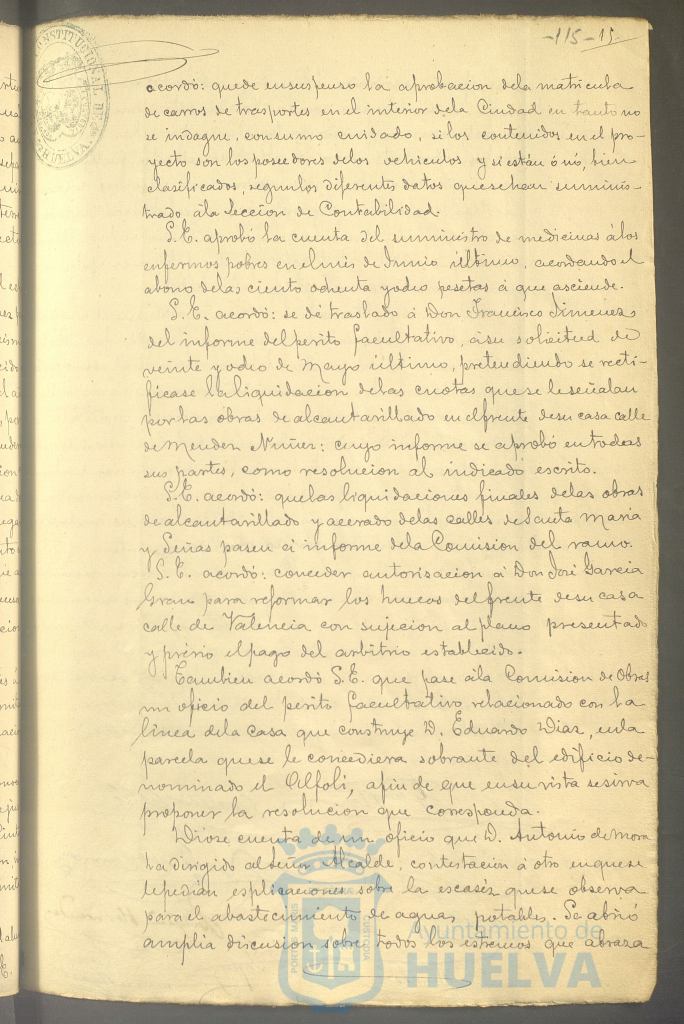 -115- 15.
CONSTITUCIONAL DE
HUELVA.
acordó: quede en suspenso la aprobacion de la matricula
de carros de trasportes en el interior de la Ciudad en tanto no
se indague, con sumo cuidado, si los contenidos en el pro-
yecto son los poseedores de los vehiculos y si están ó nó, bien
clasificados, segun los diferentes datos que se han suminis-
trado á la Seccion de Contabilidad.
S.E. aprobó la cuenta del suministro de medicinas á los
enfermos pobres en el mes de Junio último, acordando el
abono de las ciento ochenta y ocho pesetas á que asciende.
S.E. acordó: se dé traslado á Don Francisco Jimenez
del informe del perito facultativo, á su solicitud de
veinte y ocho de Mayo último, pretendiendo se recti-
ficase la liquidacion de las cuotas que se le señalan
por las obras de alcantarillado en el frente de su casa calle
de Mendez Nuñez: cuyo informe se aprobó en todas
sus partes, como resolucion al indicado escrito.
S.E. acordó: que las liquidaciones finales de las obras
de alcantarillado y acerado de las calles de Santa Maria
y Señas pasen á informe de la Comision del ramo.
S.E. acordó: conceder autorisacion á Don José Garcia
Grau para reformar los huecos del frente de su casa
calle de Valencia con sujecion al plano presentado
y prévio el pago del arbitrio establecido.
Tambien acordó S.E. que pase á la Comision de Obras
un oficio del perito facultativo relacionado con la
linea de la casa que construye D. Eduardo Diaz, en la
parcela que se le concediera sobrante del edificio de-
nominado el Alfolí, afin de que en su vista se sirva
proponer la resolucion que corresponda.
Diose cuenta de un oficio que D. Antonio de Mora
ha dirigido al Señor Alcalde, contestacion á otro en que se
le pedian esplicaciones sobre la escaséz que se observa
para el abastecimiento de aguas potables. Se abrió
amplia discusion sobre todos los estremos que abraza
Ayuntamiento de
HUELVA